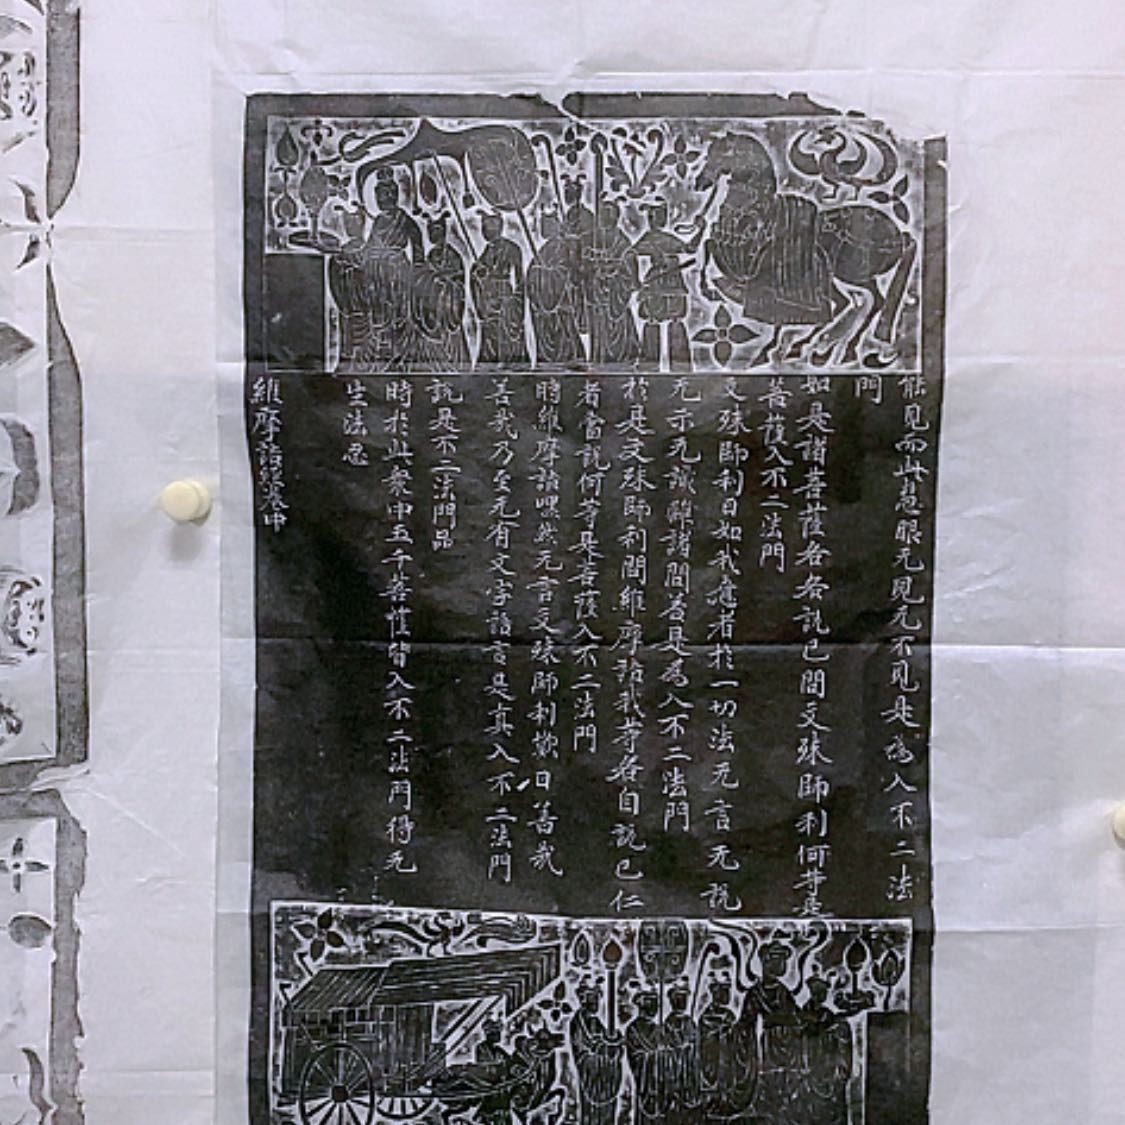 能見而此慧眼无見无不見是為入不二法
門
如是諸菩薩各各説已問文殊師利何等是
菩薩入不二法門
文殊師利曰如我意者於一切法无言无説
无示无識離諸問荅是為入不二法門
於是文殊師利問維摩詰我等各自説已仁
者當説何等是菩薩入不二法門
時維摩詰嘿然无言文殊師利歎曰善哉
善哉乃至无有文字語言是真入不二法門
説是不二法門品
時於此衆中五千菩薩皆入不二法門得无
生法忍
維摩詰経卷中